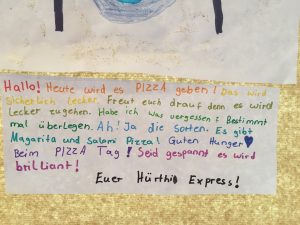 Hallo! Heute wird es PIZZA geben! Das wird
sicherlich lecker. Freut euch drauf denn es wird
lecker zugehen. Habe ich was vergessen? Bestimmt
mal überlegen. Ah! Ja die Sorten. Es gibt
Magarita und Salami Pizza! Guten Hunger
Beim PIZZA Tag! Seid gespannt es wird
brilliant!
Euer Hürthi Express!